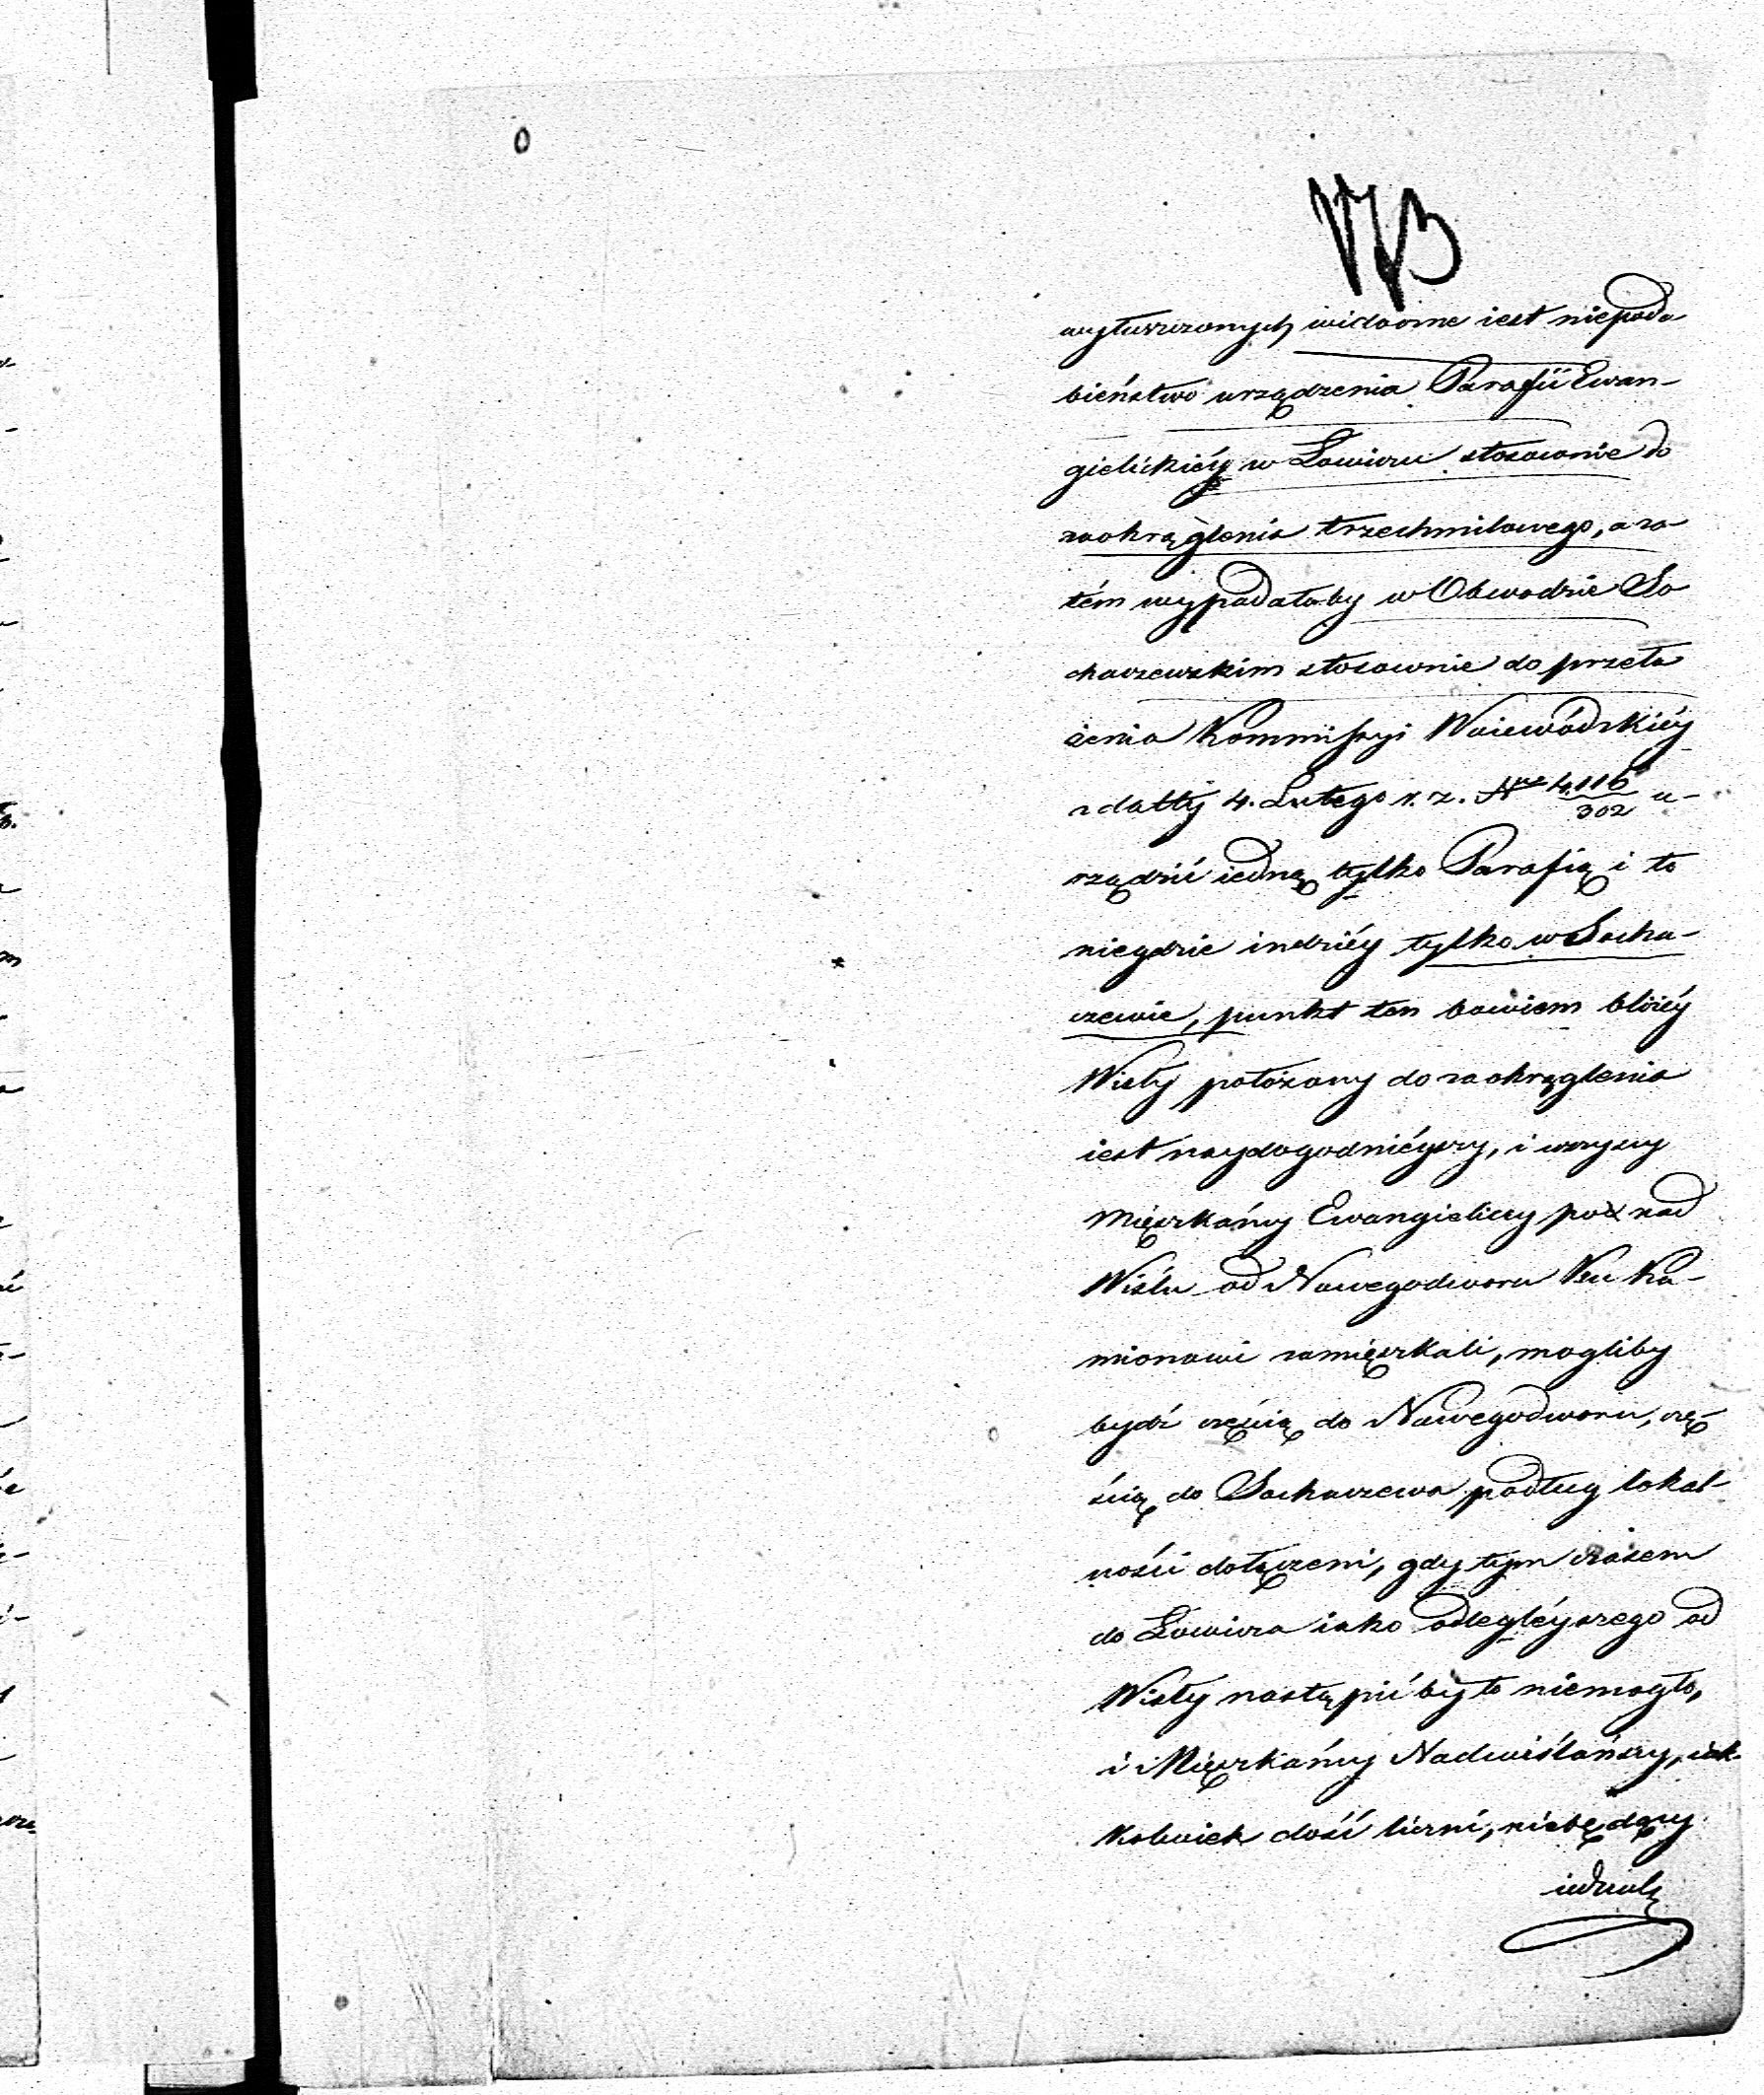 wyłuszczonych widoczne iest niepodo-
bieństwo urządzenia Parafii Ewan-
gielickiéy w Łowiczu stosownie do
zaokrąglenia trzechmilowego, a za-
tém wypadałoby w Obwodzie So
chaczewskim stosownie do przeło
żenia Kommissyi Woiewódzkiéy
z datty 4. Lutego r. z. Nro 4,116/302 u-
rządzić iedną tylko Parafią i to
niegdzie indziéy tylko w Socha-
czewie, punkt ten bowiem bliżéy
Wisły położony do zaokrąglenia
iest naydogodniéyszy, i wszyscy
Mięszkańcy Ewangieliccy pod nad
Wisłą od Nowegodworu ku Ka-
mionowi zamięszkali, mogliby
bydź częścią do Nowegodworu, czę-
ścią do Sochaczewa podług lokal-
ności dołączeni, gdy tym czasem
do Łowicza iako odległéyszego od
Wisły nastąpić by to niemogło,
i Mięszkańcy Nadwiślańscy, iak-
kolwiek dość liczni, niebędący